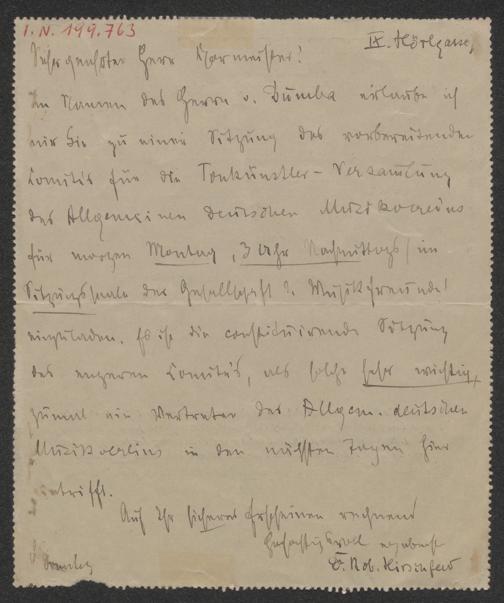 I.N. 199.763
IX. Hörlgasse,
Sehr geehrter Herr Chormeister!
Im Namen des Herrn v. Dumba erlaube ich
mir Sie zu einer Sitzung des vorbereitenden
Comités für die Tonkünstler-Versammlung
des Allgemeinen Deutschen Musikvereins
für morgen Montag, 3 Uhr Nachmittags (im
Sitzungssaale der Gesellschaft d. Musikfreunde)
einzuladen. Es ist die constituirende Sitzung
des engeren Comités, als solche sehr wichtig,
zumal ein Vertreter des Allgem. deutschen
Musikvereins in den nächsten Tagen hier
eintrifft.
Auf Ihr sicheres Erscheinen rechnend
Hochachtungsvoll ergebenst
Dr. Rob. Hirschfeld